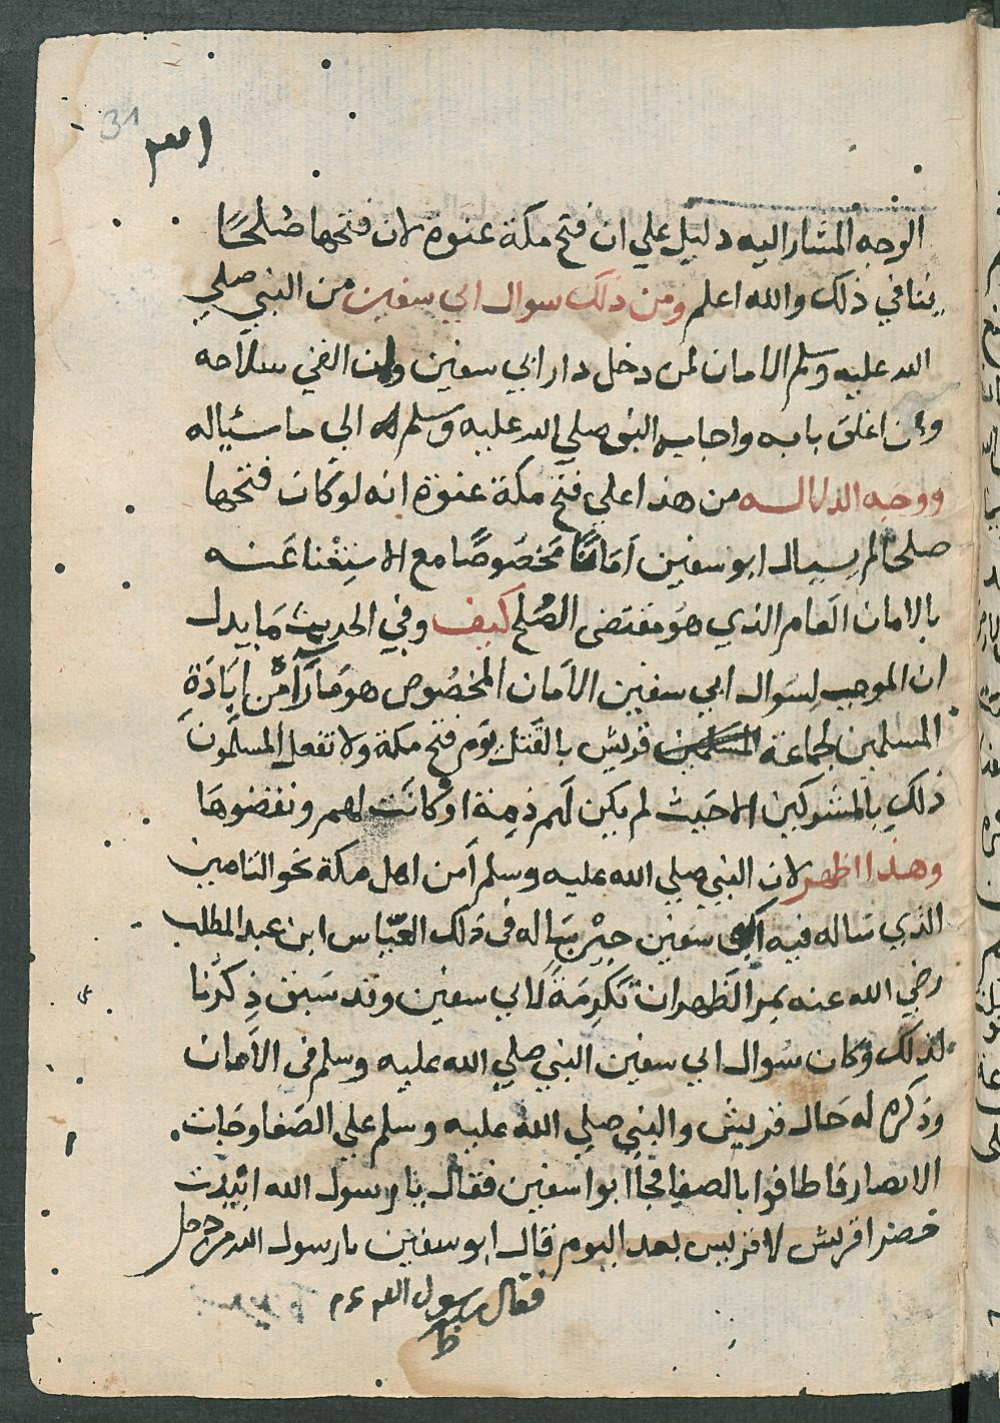 31
الوجه المشار اليه دليل علي ان فتح مكة عنوة لان فتحها صُلحًا
ينافي ذلك والله اعلم ومن ذلك سوال ابي سفين من النبي صلي
الله عليه وسلم الامان لمن دخل دار ابي سفين ولمن القي سلاحه
ولمن اغلق بابه واجابه النبي صلي الله عليه وسلم له الي ما سئاله
ووجه الدلاله من هذا علي فتح مكة عنوة انه لو كان فتحها
صلحا لم يسيال ابو سفين امانًا مخصوصًا مع الاستغنا عنه
بالامان العام الذي هو مقتضى الصُلح كيف وفي الحديث ما يدل
ان الموجب لسوال ابي سفين الامان المخصُوص هو ما رآه من ابادَةِ
المسلمين لجماعة قريش بالقتل يوم فتح مكة ولا تفعل المسلمون
ذلك بالمشركين الا حيث لم يكن لهم ذمة او كانت لهم ونقضوها
وهذا اظهر لان النبي صلي الله عليه وسلم امن اهل مكة نحو التامين
الذي ساله فيه ابي سفين حين ساله في ذلك العبّاس ابن عبد المطلب
رضي الله عنه بمر الظهران تكرمَةً لابي سفين وقد سَبق ذِكرُنا
لذلك وكان سُوال ابي سفين النبي صلي الله عليه وسلم في الأمان
وذكره له حَال قريش والنبي صلي الله عليه وسلم علي الصَفا وجات
الانصار فاطافوا بالصفا فجاا ابوا سفين فقال يا رسول الله ابيدت
خضرا قريش لا قريس بعد اليوم قال ابو سفين يا رسول الله من دخل
فقال رسول الله